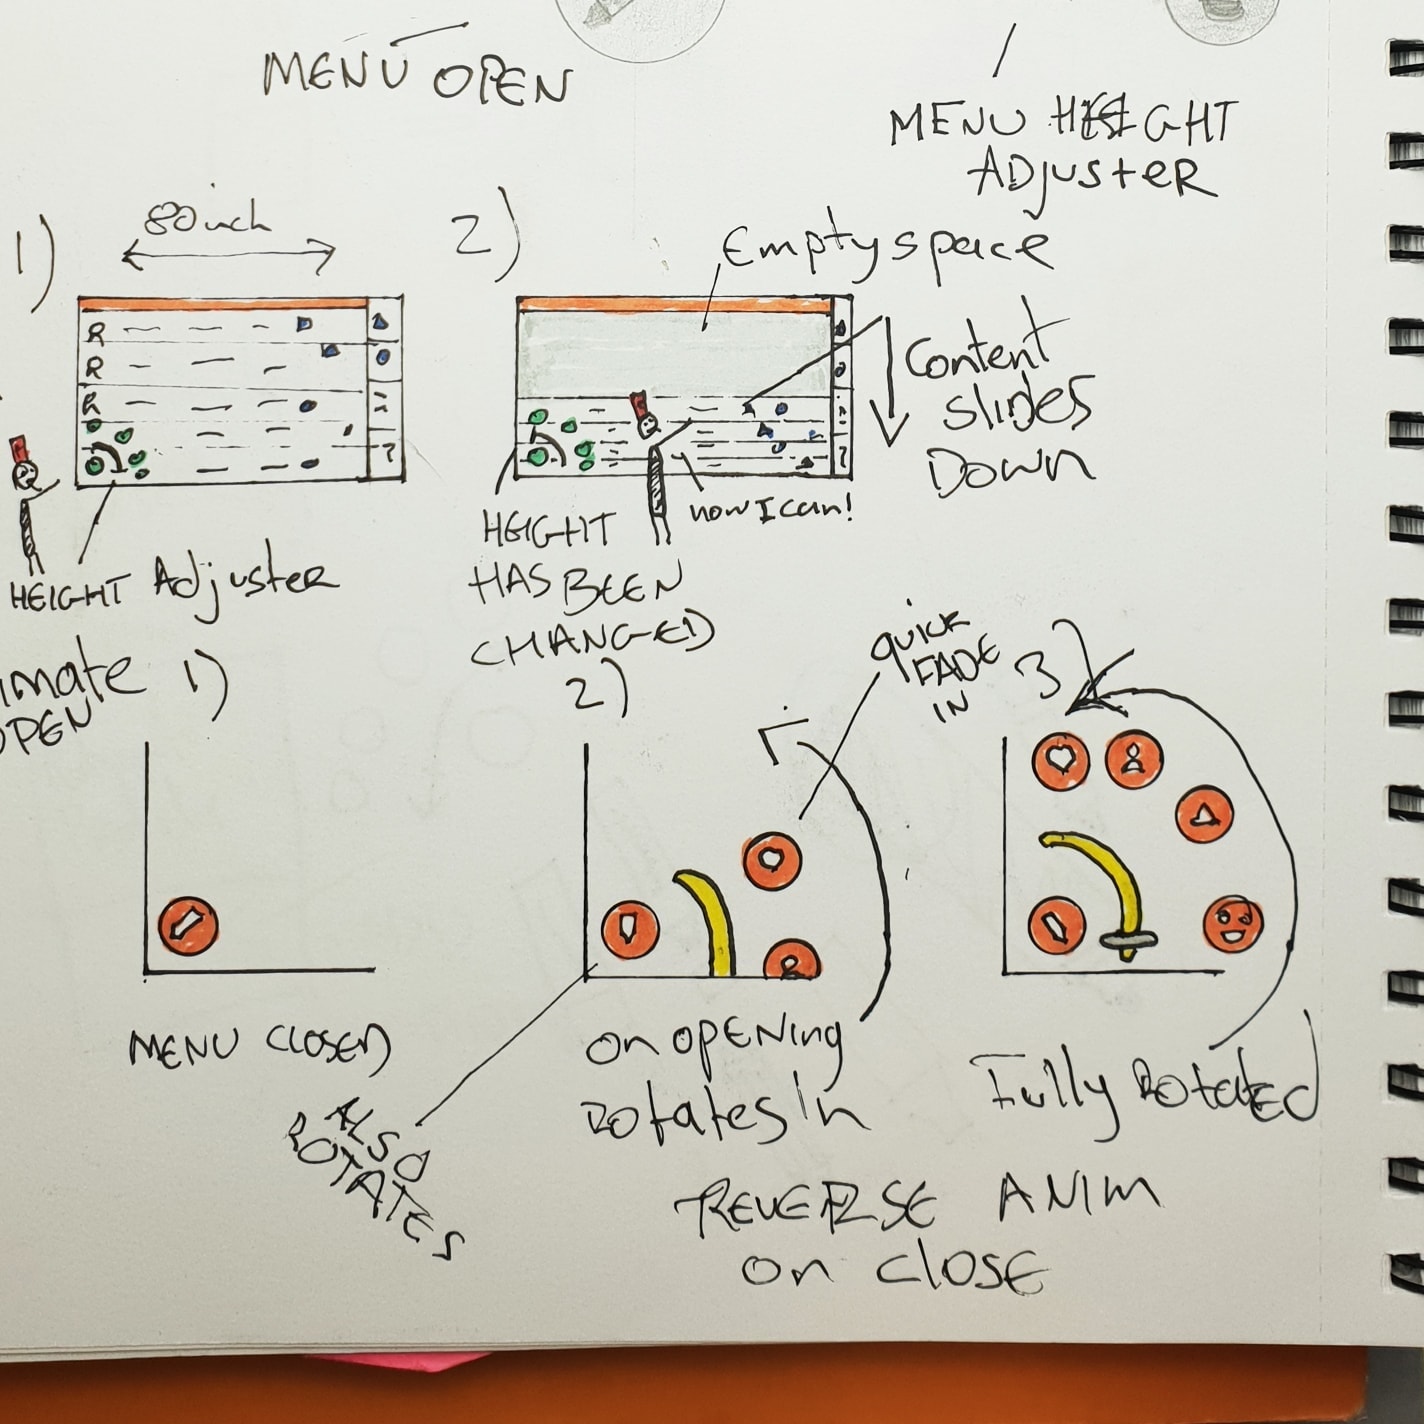 MENU OPEN
MENU HEIGHT
ADJUSTER
1)
80 inch
2)
Empty space
R
R
R
?
?
Content
slides
Down
now I can!
HEIGHT Adjuster
HEIGHT
HAS BEEN
CHANGED
imate
OPEN
1)
2)
quick
FADE
IN
3
MENU CLOSED
ALSO
ROTATES
on opening
rotates in
Fully Rotated
REVERSE ANIM
on close